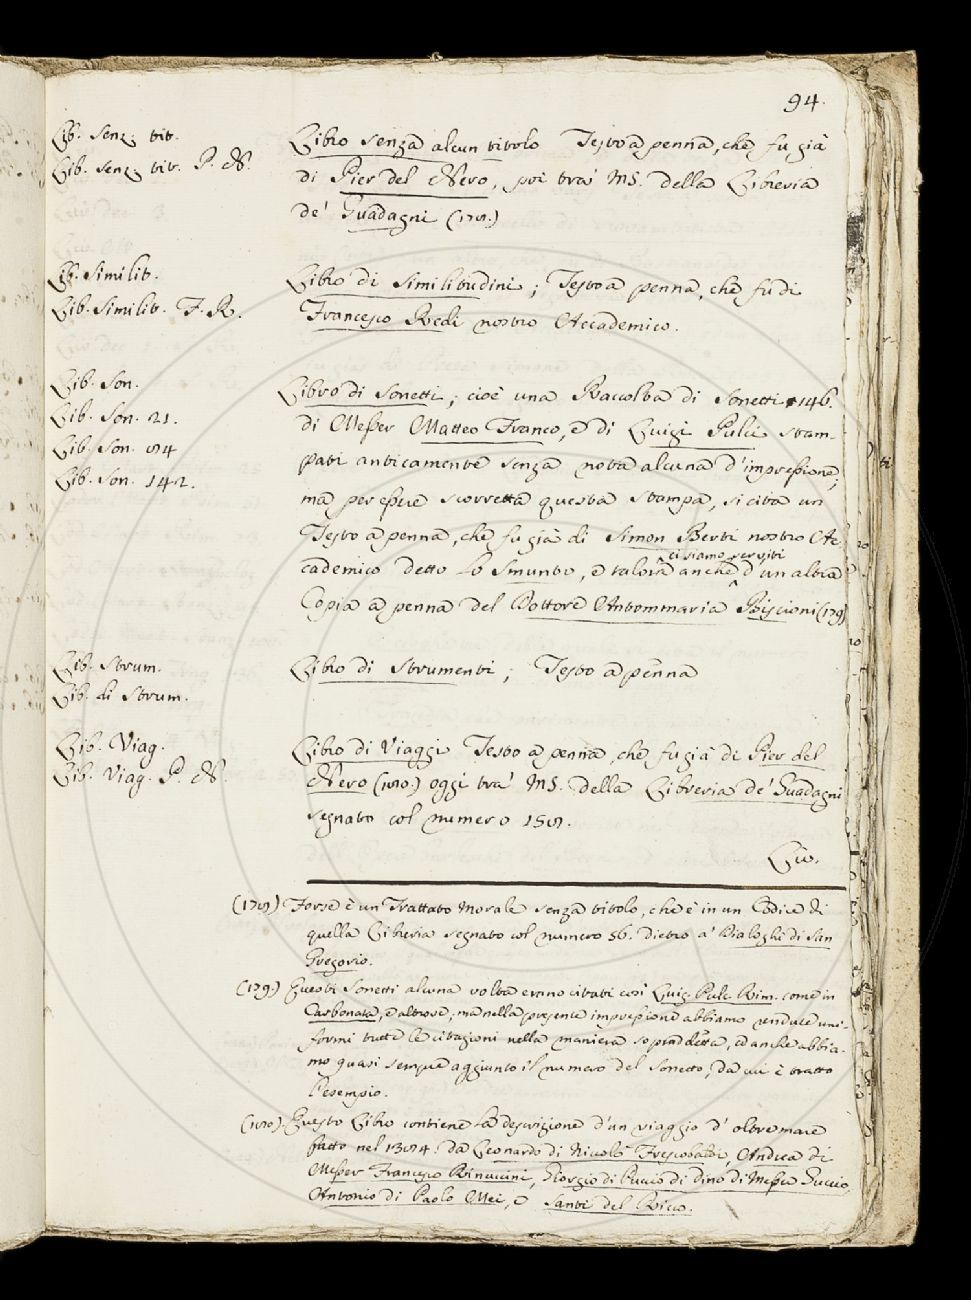 94.
Lib. Senz. tit.
Lib. Senz. tit. P. N.
Libro senza alcun titolo Testo a penna, che fu già
di Pier del Nero, poi tra' MS. della Libreria
de' Guadagni (178.)
Lib. Similit.
Lib. Similit. F. R.
Libro di Similitudini; Testo a penna, che fu di
Francesco Redi nostro Accademico.
Lib. Son.
Lib. Son. 21.
Lib. Son. 84
Lib. Son. 142.
Libro di Sonetti; cioè una Raccolta di Sonetti 146.
di Messer Matteo Franco, e di Luigi Pulci stam-
pati anticamente senza nota alcuna d'impressione;
ma per essere scorretta questa stampa, si cita un
Testo a penna, che fu già di Simon Berti nostro Ac
cademico detto lo Smunto, e talora anche d'un altra
ci siamo serviti
Copia a penna del Dottore Antommaria Biscioni (179)
Lib. Strum.
Lib. di Strum.
Libro di Strumenti; Testo a penna
Lib. Viag.
Lib. Viag. P. N.
Libro di Viaggi Testo a penna, che fu già di Pier del
Nero (180.) oggi tra' MS. della Libreria de' Guadagni
segnato col numero 158.
Liv.
(178) Forse è un Trattato Morale senza titolo, che è in un Codice di
quella Libreria segnato col numero 56. dietro a' Dialoghi di San
Gregorio.
(179) Questi Sonetti alcuna volta erano citati così Luig. Pulc. Rim. come in
Carbonata, e altrove; ma nella presente impressione abbiamo rendute uni-
formi tutte le citazioni nella maniera sopraddetta, ed anche abbia-
mo quasi sempre aggiunto il numero del Sonetto, da cui è tratto
l'esempio.
(180) Questo Libro contiene la descrizione d'un viaggio d'oltremare
fatto nel 1384. da Leonardo di Niccolò Frescobaldi, Andrea di
Messer Francesco Rinuccini, Giorgio di Guccio di Dino di Messer Guccio,
Antonio di Paolo Mei, e Santi del Ricco.